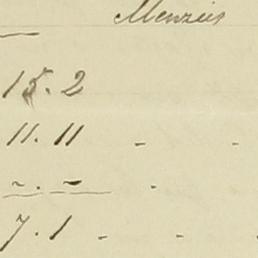 Menzies
15.2
11.11 - -
~.~ .
7.1 - - -